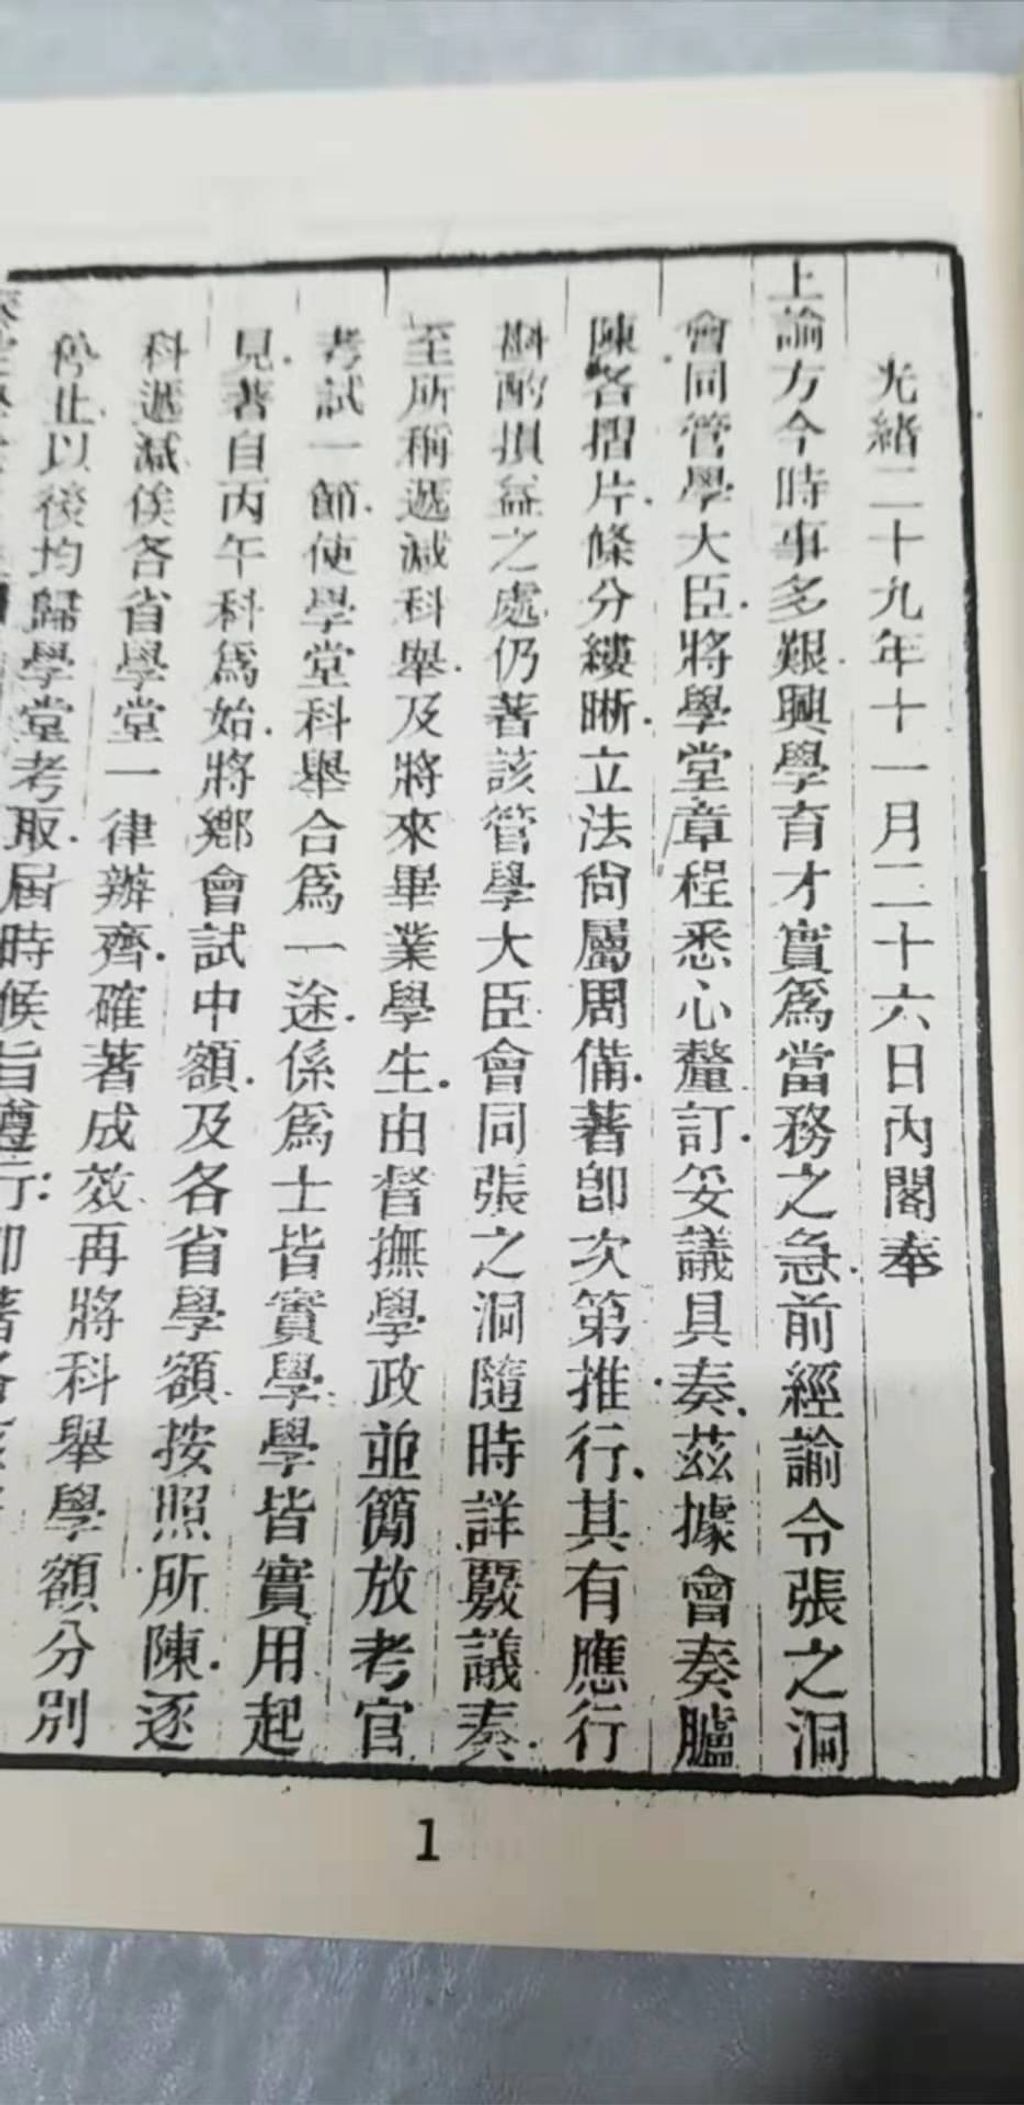 光緒二十九年十一月二十六日內閣奉
上諭方今時事多艱興學育才實爲當務之急前經諭令張之洞
會同管學大臣將學堂章程悉心釐訂妥議具奏茲據會奏臚
陳各摺片條分縷晰立法尙屬周備著卽次第推行其有應行
斟酌損益之處仍著該管學大臣會同張之洞隨時詳覈議奏
至所稱遞減科舉及將來畢業學生由督撫學政並簡放考官
考試一節使學堂科舉合爲一途係爲士皆實學學皆實用起
見著自丙午科爲始將鄉會試中額及各省學額按照所陳逐
科遞減俟各省學堂一律辦齊確著成效再將科舉學額分別
停止以後均歸學堂考取屆時候旨遵行卽著各
1